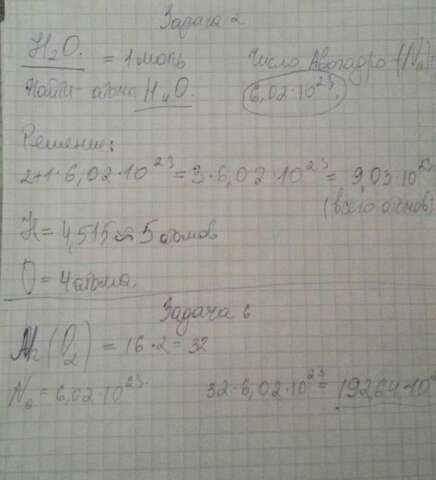 Задача 2
H₂O. = 1 моль Число Авогадро (Nа)=
Найти атомы H и O. 6,02·10²³.
Решение:
2+1·6,02·10²³ = 3·6,02·10²³ = 9,03·10²³
(всего атомов)
H = 4,515 ≈ 5 атомов
O = 4 атома.
Задача 6
Mr (O₂) = 16·2 = 32
Nа = 6,02·10²³. 32·6,02·10²³ = 19264·10